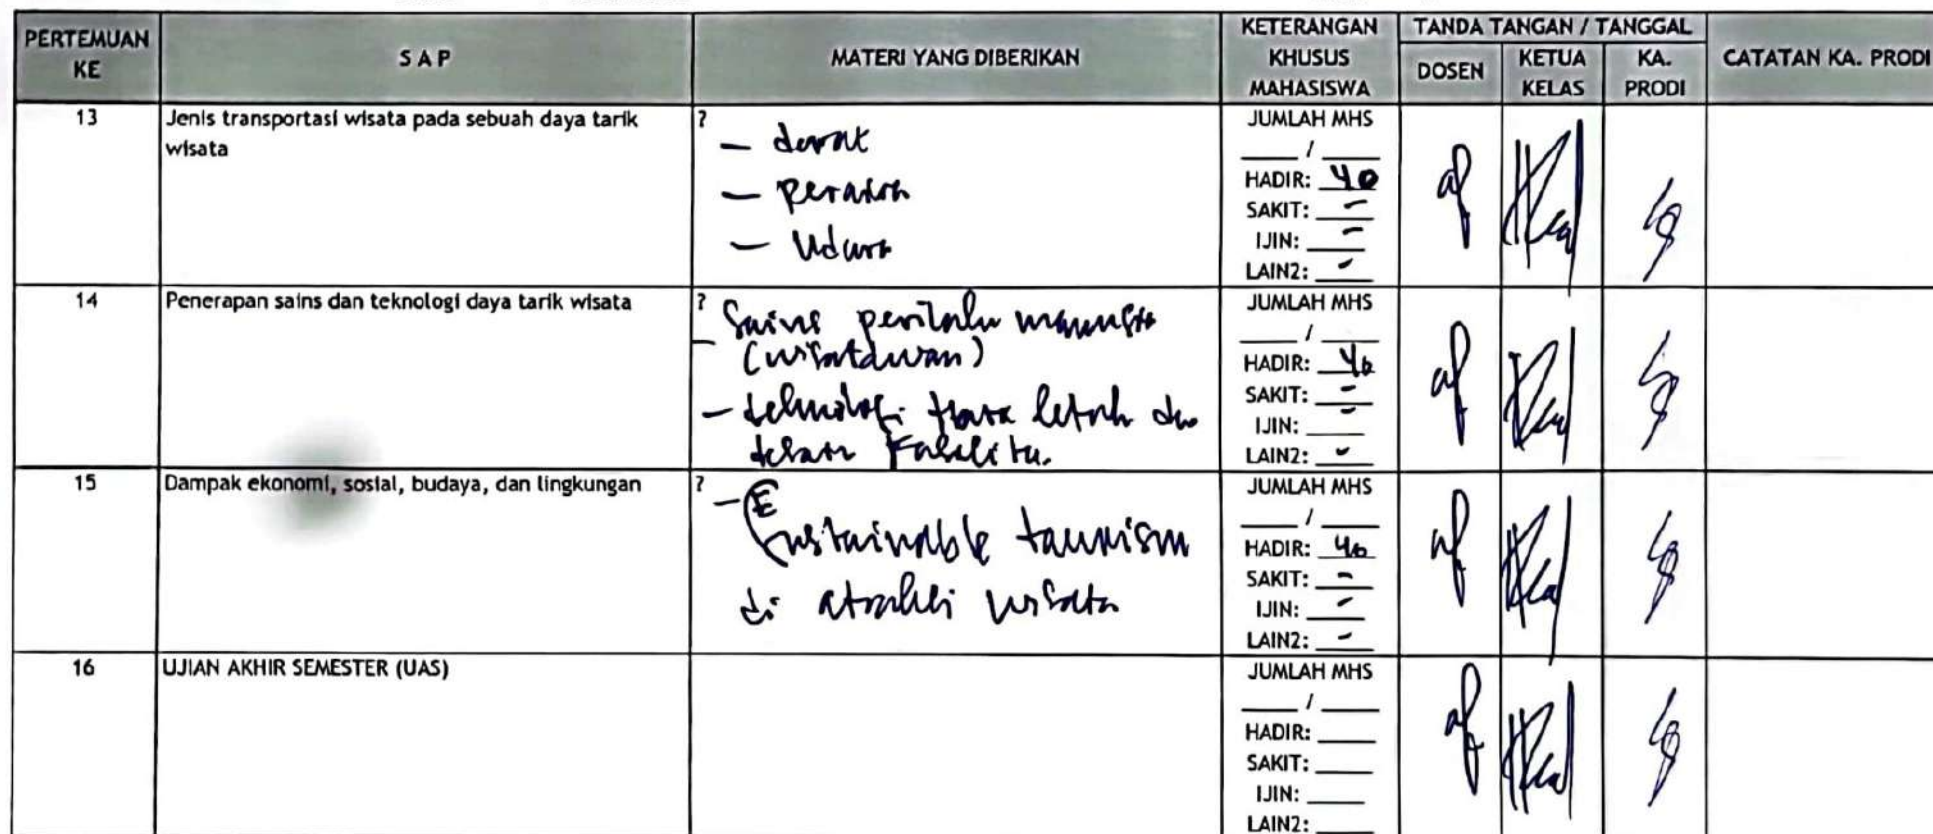 PERTEMUAN KE
S A P
MATERI YANG DIBERIKAN
KETERANGAN KHUSUS MAHASISWA
TANDA TANGAN / TANGGAL
DOSEN
KETUA KELAS
KA. PRODI
CATATAN KA. PRODI
13
Jenis transportasi wisata pada sebuah daya tarik
wisata
?
- darat
- perairan
- Udara
JUMLAH MHS
___ / ___
HADIR: 40
SAKIT: -
IJIN: -
LAIN2: -
14
Penerapan sains dan teknologi daya tarik wisata
?
- Sains perilaku manusia
(wisatawan)
- teknologi tata letak dan
desain Fasilitas.
JUMLAH MHS
___ / ___
HADIR: 40
SAKIT: -
IJIN: -
LAIN2: -
15
Dampak ekonomi, sosial, budaya, dan lingkungan
?
- Sustainable tourism
di atraksi wisata
JUMLAH MHS
___ / ___
HADIR: 40
SAKIT: -
IJIN: -
LAIN2: -
16
UJIAN AKHIR SEMESTER (UAS)
JUMLAH MHS
___ / ___
HADIR: ___
SAKIT: ___
IJIN: ___
LAIN2: ___